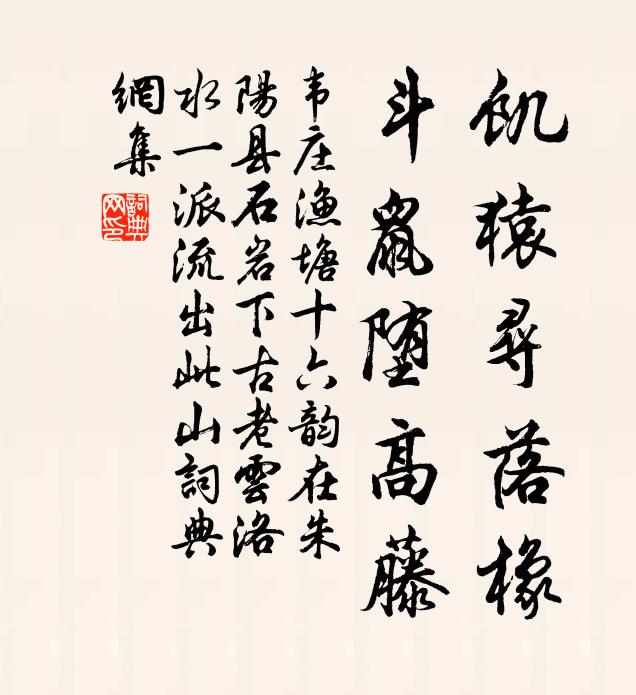 飢猿尋落橡
斗鼠堕高藤
韦庄渔塘十六韵在朱
陽县石岩下古老雲洛
水一派流出此山詞典
網集
詞典
网印